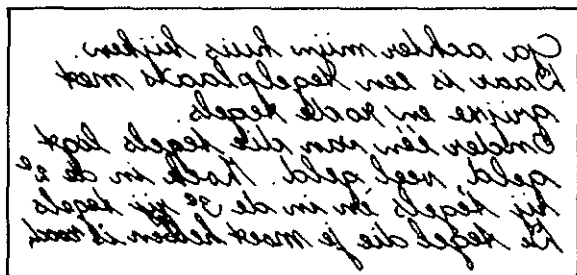 Ga achter mijn huis kijken.
Daar is een tegelplaats met
grijze en rode tegels.
Onder één van die tegels ligt
geld veel geld. Zoek in de 2e
rij tegels én in de 3e rij tegels
De tegel die je moet hebben is rood.